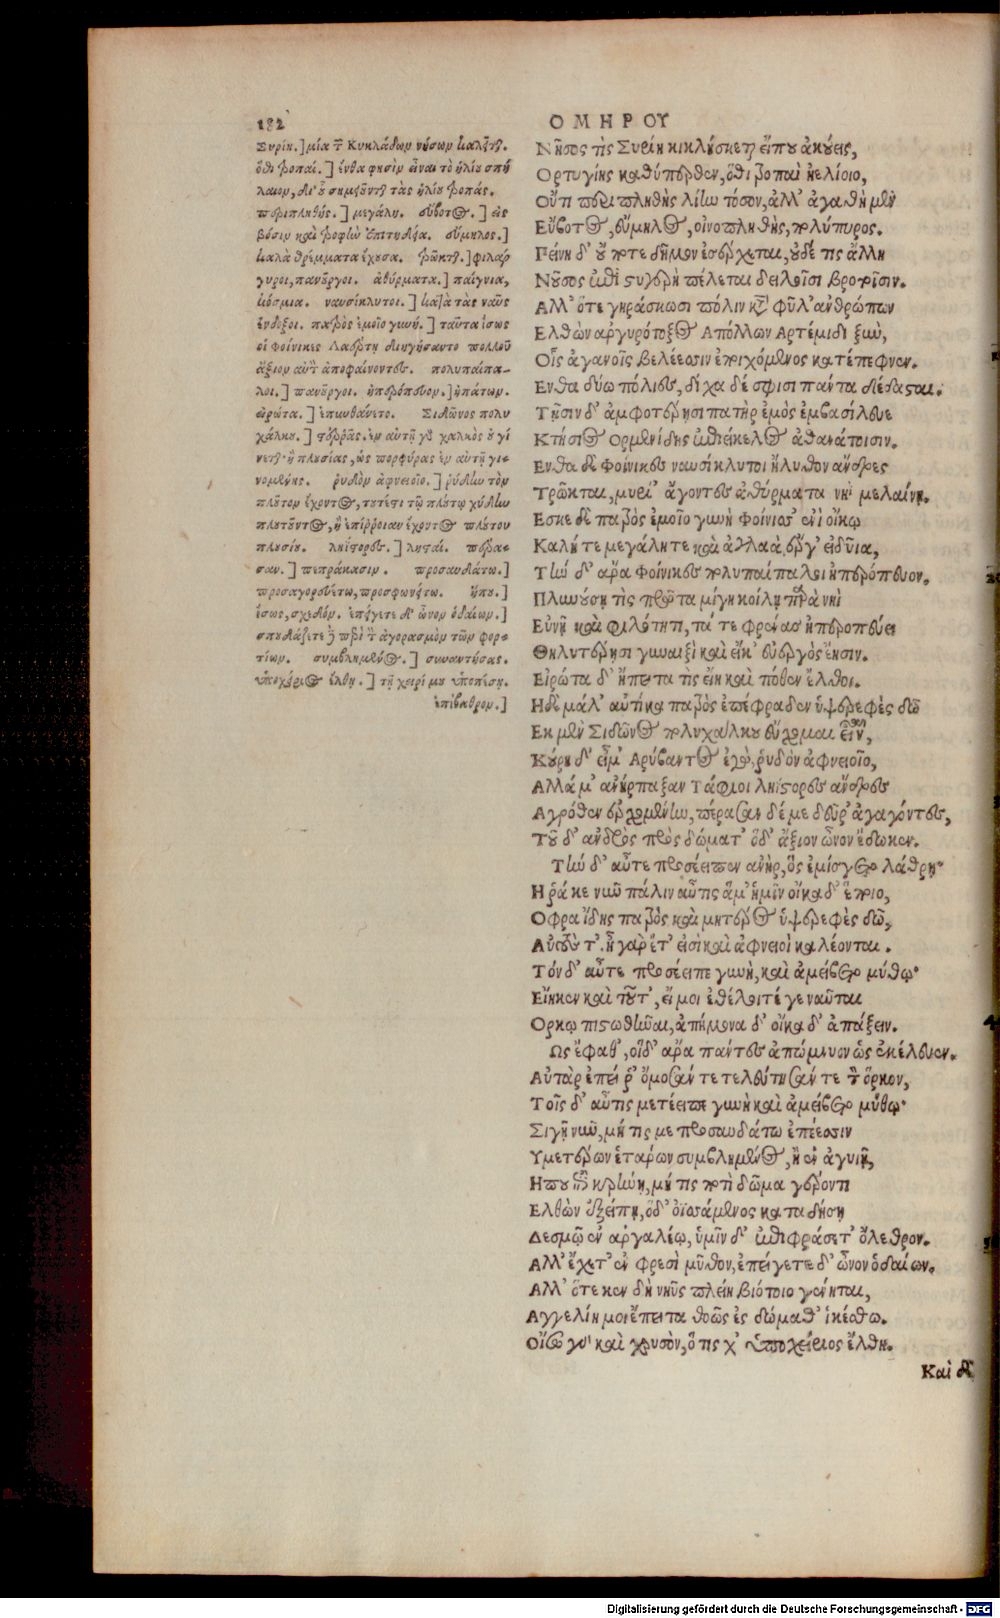 182
ΟΜΗΡΟΥ
Συρίη.] μία τ̃ Κυκλάδων νήσων καλεῖται.
ὅθι τροπαί.] ἔνθα φησὶν εἶναι τὸ ἡλίου σπή
λαιον, δι' οὗ σημειοῦνται τὰς ἡλίου τροπάς.
περιπληθής.] μεγάλη. εὔβοτος.] εἰς
βόσιν καὶ τροφὴν ἐπιτηδεία. εὔμηλος.]
καλὰ θρέμματα ἔχουσα. τρῶκται.] φιλάρ
γυροι, πανοῦργοι. ἀθύρματα.] παίγνια,
κόσμια. ναυσίκλυτοι.] κατὰ τὰς ναῦς
ἔνδοξοι. πατρὸς ἐμοῖο γυνή.] ταῦτα ἴσως
οἱ Φοίνικες Λαέρτῃ διηγήσαντο πολλοῦ
ἄξιον αὐτὸν ἀποφαίνοντες. πολυπαίπα-
λοι.] πανοῦργοι. ἠπερόπευον.] ἠπάτων.
εἰρώτα.] ἐπυνθάνετο. Σιδῶνος πολυ
χάλκου.] ἐν αὐτῇ γὰρ χαλκὸς οὐ γί
νεται· ἢ πλουσίας, ὡς πορφύρας ἐν αὐτῇ γι-
νομένης. ῥυδὸν ἀφνειοῖο.] ῥύδην τὸν
πλοῦτον ἔχοντος, τουτέστι τῷ πλούτῳ χύδην
πλουτοῦντος, ἢ ἐπίρροιαν ἔχοντος πλούτου
πλουσίου. ληΐστορες.] λῃσταί. πέρα-
σαν.] πεπράκασιν. προσαυδάτω.]
προσαγορευέτω, προσφωνήτω. ἤπου.]
ἴσως, σχεδόν. ἐπείγετε δ' ὦνον ὁδαίων.]
σπουδάζετε περὶ τ̀ ἀγορασμὸν τῶν φορ-
τίων. συμβλήμενος.] συναντήσας.
ὑποχείριος ἔλθῃ.] τῇ χειρί μου ὑποπέσῃ.
ἐπίβαθρον.]
Νῆσος τὶς Συρίη κικλήσκεται εἴπου ἀκούεις,
Ορτυγίης καθύπερθεν, ὅθι τροπαὶ ἠελίοιο,
Οὔτι περιπληθὴς λίην τόσον, ἀλλ' ἀγαθὴ μὲν
Εὔβοτος, εὔμηλος, οἰνοπληθὴς, πολύπυρος.
Πείνη δ' οὔ ποτε δῆμον ἐσέρχεται, οὐδέ τις ἄλλη
Νοῦσος ἐπὶ στυγερὴ πέλεται δειλοῖσι βροτοῖσιν.
Αλλ' ὅτε γηράσκωσι πόλιν κάτα φῦλ' ἀνθρώπων
Ελθὼν ἀργυρότοξος Απόλλων Αρτέμιδι ξὺν,
Οἷς ἀγανοῖς βελέεσσιν ἐποιχόμενος κατέπεφνεν.
Ενθα δύω πόλιες, δίχα δέ σφισι πάντα δέδασται.
Τῇσιν δ' ἀμφοτέρῃσι πατὴρ ἐμὸς ἐμβασίλευε
Κτήσιος Ορμενίδης ἐπιείκελος ἀθανάτοισιν.
Ενθα δὲ Φοίνικες ναυσίκλυτοι ἤλυθον ἄνδρες
Τρῶκται, μυρί' ἄγοντες ἀθύρματα νηῒ μελαίνῃ.
Εσκε δὲ πατρὸς ἐμοῖο γυνὴ Φοίνισσ' ἐνὶ οἴκῳ
Καλή τε μεγάλη τε καὶ ἀγλαὰ ἔργ' εἰδυῖα,
Τὴν δ' ἄρα Φοίνικες πολυπαίπαλοι ἠπερόπευον.
Πλυνούσῃ τὶς πρῶτα μίγη κοίλῃ παρὰ νηῒ
Εὐνῇ καὶ φιλότητι, τά τε φρένας ἠπεροπεύει
Θηλυτέρῃσι γυναιξὶ καὶ εἴκ' εὐεργὸς ἔῃσιν.
Εἰρώτα δ' ἤπειτα τὶς εἴη καὶ πόθεν ἔλθοι.
Ηδὲ μάλ' αὐτίκα πατρὸς ἐπέφραδεν ὑψερεφὲς δῶ
Εκ μὲν Σιδῶνος πολυχάλκου εὔχομαι εἶναι,
Κούρη δ' εἴμ' Αρύβαντος ἐγὼ, ῥυδὸν ἀφνειοῖο,
Αλλά μ' ἀνήρπαξαν Τάφιοι ληΐστορες ἄνδρες
Αγρόθεν ἐρχομένην, πέρασαν δέ με δεῦρ' ἀγαγόντες,
Τοῦ δ' ἀνδρὸς πρὸς δώματ' ὅδ' ἄξιον ὦνον ἔδωκεν.
Τὴν δ' αὖτε προσέειπεν ἀνὴρ, ὃς ἐμίσγετο λάθρῃ·
Ηῥά κε νῦν πάλιν αὖτις ἅμ' ἡμῖν οἴκαδ' ἕποιο,
Οφρα ἴδῃς πατρὸς καὶ μητέρος ὑψερεφὲς δῶ,
Αὐτούς τ'. ἦ γὰρ ἔτ' εἰσὶ καὶ ἀφνειοὶ καλέονται.
Τόν δ' αὖτε προσέειπε γυνὴ, καὶ ἀμείβετο μύθῳ·
Εἴηκεν καὶ τοῦτ', εἴ μοι ἐθέλοιτέ γε ναῦται
Ορκῳ πιστωθῆναι, ἀπήμονα δ' οἴκαδ' ἀπάξειν.
Ως ἔφαθ', οἵδ' ἄρα πάντες ἀπώμνυον ὡς ἐκέλευεν.
Αὐτὰρ ἐπεί ῥ' ὄμοσάν τε τελεύτησάν τε τ̀ ὅρκον,
Τοῖς δ' αὖτις μετέειπε γυνὴ καὶ ἀμείβετο μύθῳ·
Σιγῇ νῦν, μή τις με προσαυδάτω ἐπέεσσιν
Υμετέρων ἑτάρων συμβλήμενος, ἢ ἐν ἀγυιῇ,
Ηπου ἐπὶ κρήνῃ, μή τις ποτὶ δῶμα γέροντι
Ελθὼν ἐξείπῃ, ὅδ' ὀϊσσάμενος καταδήσῃ
Δεσμῷ ἐν ἀργαλέῳ, ὑμῖν δ' ἐπιφράσετ' ὄλεθρον.
Αλλ' ἔχετ' ἐν φρεσὶ μῦθον, ἐπείγετε δ' ὦνον ὁδαίων.
Αλλ' ὅτε κεν δὴ νηῦς πλείη βιότοιο γένηται,
Αγγελίη μοι ἔπειτα θοῶς ἐς δώμαθ' ἱκέσθω.
Οἴσω γὰρ καὶ χρυσὸν, ὅ τις χ' ὑποχείριος ἔλθῃ.
Καὶ δέ
Digitalisierung gefördert durch die Deutsche Forschungsgemeinschaft - DFG